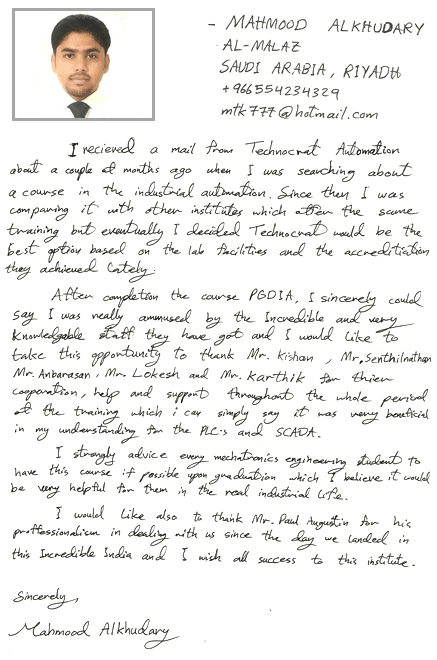 - MAHMOOD ALKHUDARY
AL-MALAZ
SAUDI ARABIA, RIYADH
+966554234329
mtk777@hotmail.com
I recieved a mail from Technocrat Automation
about a couple of months ago when I was searching about
a course in the industrial automation. Since then I was
comparing it with other institutes which offer the same
training but eventually I decided Technocrat would be the
best option based on the lab facilities and the accreditiation
they achieved Lately.
After completion the course PGDIA, I sincerely could
say I was really ammused by the Incredible and very
Knowledgable staff they have got and I would like to
take this opportunity to thank Mr. Kishan, Mr. Senthilnathan
Mr. Anbarasan, Mr. Lokesh and Mr. Karthik for thier
cooperation, help and support throughout the whole period
of the training which i can simply say it was very beneficial
in my understanding for the PLC's and SCADA.
I strongly advice every mechatronics engineering student to
have this course if possible upon graduation which I believe it would
be very helpful for them in the real industrial life.
I would Like also to thank Mr. Paul Augustin for his
proffessionalism in dealing with us since the day we landed in
this Incredible India and I wish all success to this institute.
Sincerely,
Mahmood Alkhudary